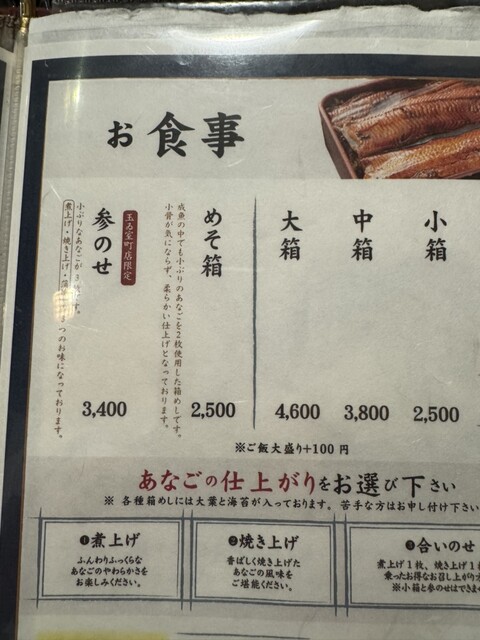 お食事
小箱
2,500
中箱
3,800
大箱
4,600
めそ箱
成魚の中でも小ぶりのあなごを2枚使用した箱めしです。
小骨が気にならず、柔らかい仕上げとなっております。
2,500
玉ゐ室町店限定
参のせ
小ぶりなあなごが3
です。
煮上げ・焼き上げ・蒲
つのお味になっております。
3,400
※ご飯大盛り+100円
あなごの仕上がりをお選び下さい
※ 各種箱めしには大葉と海苔が入っております。苦手な方はお申し付け下さい
❶煮上げ
ふんわりふっくらな
あなごのやわらかさを
お楽しみください。
❷焼き上げ
香ばしく焼き上げた
あなごの風味を
ご堪能ください。
❸合いのせ
煮上げ1枚、焼き上げ1
乗ったお得なお召し上がり
※小箱と参のせはできま